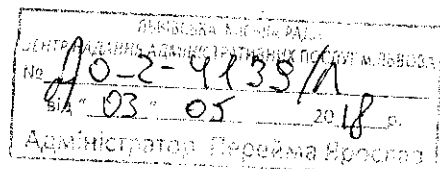 ЛЬВІВСЬКА МІСЬКА РАДА
ЦЕНТР НАДАННЯ АДМІНІСТРАТИВНИХ ПОСЛУГ М. ЛЬВОВА
№ 2-4139/Л
від " 03 " 05 2018 р.
Адміністратор Перейма Ярослав